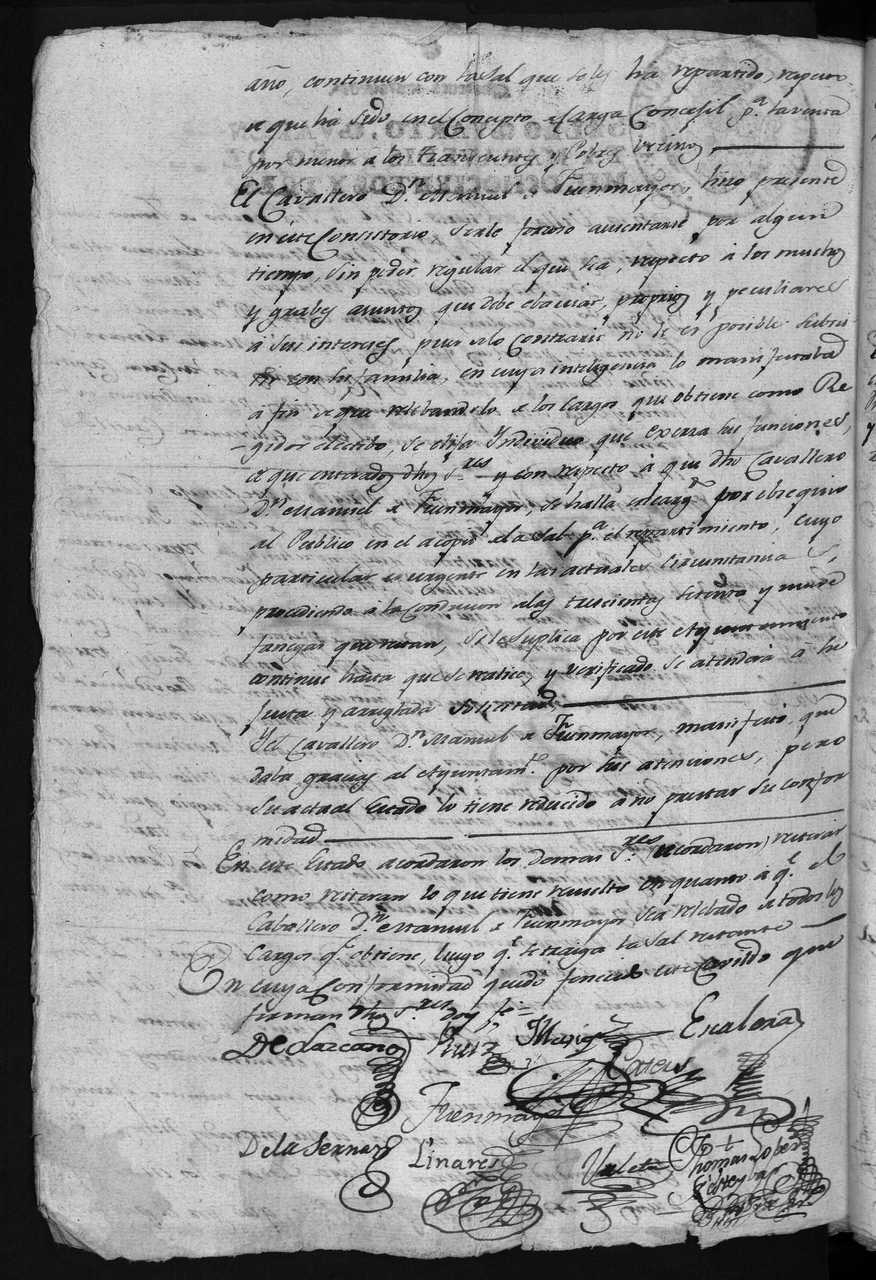 año, continuen con la sal que se les ha repartido, respecto
a que ha sido en el Concepto de Carga Concejil p.ª la venta
por menor a los Transeuntes y Pobres vecinos,
El Cavallero D.n Manuel de Fuenmayor, hizo presente
en este Consistorio serle forzoso ausentarse por algun
tiempo, sin poder regular el que sea, respecto à los muchos
y grabes asuntos que debe ebacuar, propios y peculiares
à sus intereses, pues de lo Contrario no le es posible subsis
tir con su familia, en cuya inteligencia lo manifestaba
a fin de que relebandolo de los cargos que obtiene como Re
gidor electibo, se elija Individuo que exerza sus funciones,
de que enterados dhos S.res y con respecto à que dho Cavallero
D.n Manuel de Fuenmayor, se halla encarg.do por obsequio
al Publico en el acopio de la sal p.ª el repartimiento, cuyo
particular es urgente en las actuales Circunstancias,
procediendo à la Conducion de las trescientas setenta y nueve
fanegas que restan, se le suplica por este Ayuntamiento
continue hasta que se realice, y verificado se atenderà à su
justa y arreglada solicitud
Y el Cavallero D.n Manuel de Fuenmayor, manifestò que
daba gracias al Ayuntam.to por sus atenciones, pero
su actual Estado lo tiene reducido à no prestar su confor
midad
En este Estado acordaron los demas S.res (acordaron) reiterar
como reiteran lo que tiene resuelto en quanto à q.e el
Caballero D.n Manuel de Fuenmayor sea relebado de todos los
Cargos q.e obtiene, luego q.e se traiga la sal restante
En cuya Conformidad quedò fenecido este Cavildo que
firman dhos S.res doy fe=
De Lazcano Ruiz Escalera
Fuenmayor
De la Serna Linares Uleta Thomas Lopez